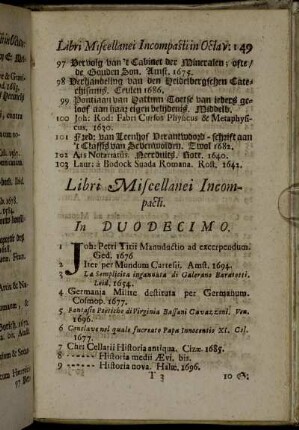 Libri Miscellanei Incompacti in Octav: 149
97 Vervolg van 't Cabinet der Mineralen; ofte/
de Gouden Son. Amst. 1675.
98 Verhandeling van den Heidelbergschen Cate-
chismus. Ceulen 1686.
99 Pontiaan van Hattum Toetse van ieders ge-
loof aan haar eigen belydenis. Middelb.
100 Joh: Rod: Fabri Cursus Physicus & Metaphysi-
cus, 1630.
101 Fred: van Leenhof Verantwoord-schrift aan
't Classis van Sevenwolden. Zwol 1682.
102 Ars Notariatus. Norrbuies, Gott. 1640.
103 Laur: à Bodock Suada Romana. Rost. 1642.
Libri Miscellanei Incom-
pacti.
In DUODECIMO.
1 Joh: Petri Titii Manuductio ad excerpendum.
Ged. 1676
2 Iter per Mundum Cartesii. Amst. 1694.
3 La Semplicita ingannata di Galerana Baratotti.
Leid. 1654.
4 Germania Milite destituta per Germanum.
Cosmop. 1677.
5 Fantasie Poetiche di Virginio Bassani Cavazzoni. Ven.
1696.
6 Conclave nel quale fu creato Papa Innocentio XI. Col.
1677.
7 Chri: Cellarii Historia antiqua. Cizæ. 1685.
8 ------- Historia medii Ævi. bis.
9 ------- Historia nova. Halæ, 1696.
T 3 10 G: